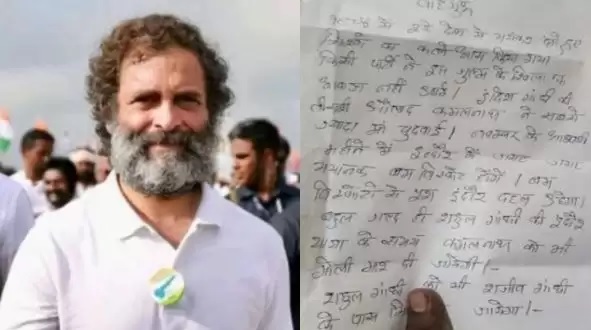 वाहे गुरु
में पूरे देश में भयंकर दंगे हुए
सिखों का कत्लेआम किया गया
किसी पार्टी ने इस जुल्म के खिलाफ
आवाज नहीं उठाई। इंदिरा गांधी की
औलाद कमलनाथ ने सबसे
ज्यादा नवम्बर के आखिरी
महीने में इंदौर में जगह जगह
भयानक बम विस्फोट होंगे। बम
विस्फोटों से पूरा इंदौर दहल उठेगा।
बहुत जल्द ही राहुल गांधी की इंदौर
यात्रा के समय कमलनाथ को भी
गोली मार दी जायेगी।-
राहुल गांधी को भी राजीव गांधी
के पास जायेगा।-